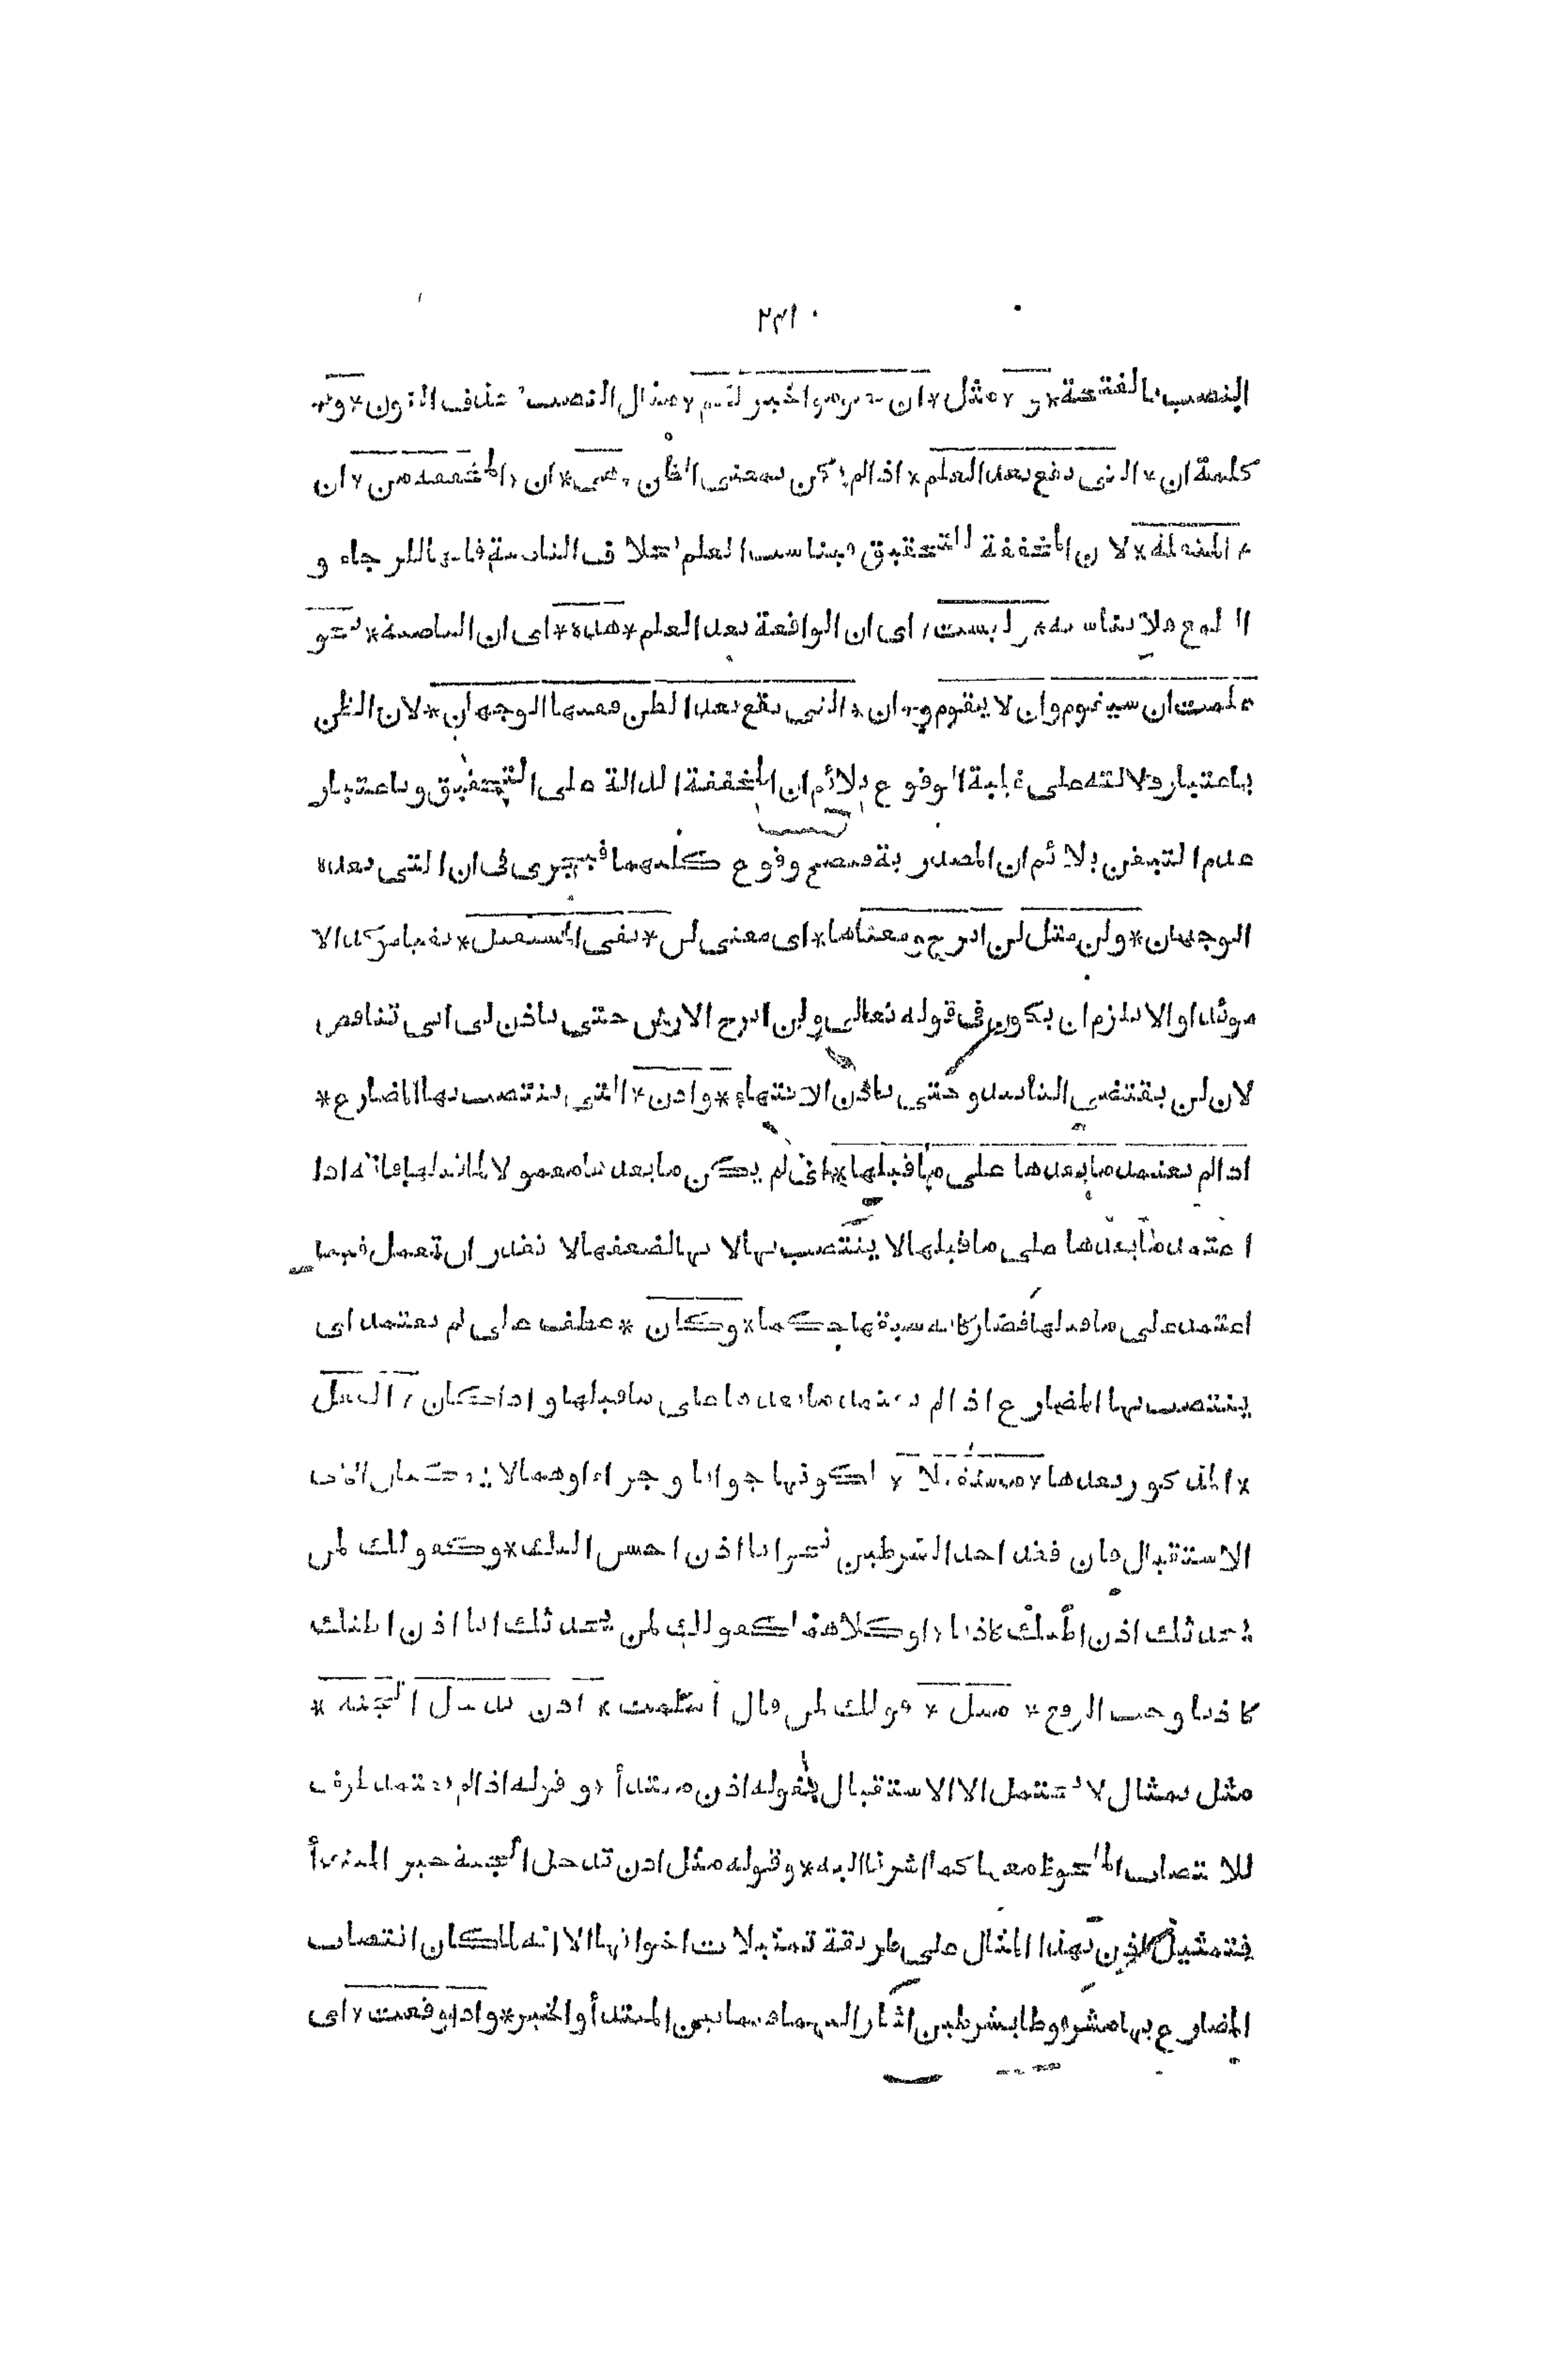 ٢٣١
النصب بالفتحة * و * مثل * ان تصوموا خير لكم * مثال النصب بحذف النون * و
كلمة ان * التي تقع بعد العلم * اذا لم يكن بمعنى الظن * هي * ان * المخففة من * ان
* المثقلة * لان المخففة للتحقيق فيناسب العلم بخلاف الناصبة فانها للرجاء و
الطمع فلا يناسبه * وليست * اي ان الواقعة بعد العلم * هذه * اى ان الناصبة * نحو
علمت ان سيقوم وان لا يقوم و * ان * التي تقع بعد الظن ففيها الوجهان * لان الظن
باعتبار دلالته على غلبة الوقوع يلائم ان المخففة الدالة على التحقيق وباعتبار
عدم التيقن يلائم ان المصدرية فيصح وقوع كليهما فيجرى فى ان التى بعده
الوجهان * ولن مثل لن ابرح ومعناها * اى معنى لن * نفى المستقبل * نفيا مؤكدا لا
مؤبدا والا يلزم ان يكون فى قوله تعالى ولن ابرح الارض حتى ياذن لى ابى تناقض
لان لن يقتضي التأبيد وحتى ياذن الانتهاء * واذن * التى ينتصب بها المضارع *
اذا لم يعتمد ما بعدها على ما قبلها * اى لم يكن ما بعدها معمولا لما قبلها فانه اذا
اعتمد ما بعدها على ما قبلها لا ينتصب بها لانها لضعفها لا تقدر ان تعمل فيما
اعتمد على ما قبلها فصار كانه سبقها حكما * وكان * عطف على لم يعتمد اى
ينتصب بها المضارع اذا لم يعتمد ما بعدها على ما قبلها واذا كان * الفعل
* المذكور بعدها * مستقبلا * لكونها جوابا وجزاء وهما لا يكونان الا فى
الاستقبال فان فقد احد الشرطين نحو انا اذن احسن اليك * وكقولك لمن
يحدثك اذن اظنك كاذبا * او كلاهما كقولك لمن يحدثك انا اذن اظنك
كاذبا وجب الرفع * مثل * قولك لمن قال اسلمت * اذن تدخل الجنة *
مثل بمثال لا يحتمل الا الاستقبال فقوله اذن مبتدأ * وقوله اذا لم يعتمد ظرف
للانتصاب الملحوظ معها كما اشرنا اليه * وقوله مثل اذن تدخل الجنة خبر المبتدأ
فتمثيل اذن بهذا المثال على طريقة تمثيلات اخواتها الا انه لما كان انتصاب
المضارع بها مشروطا بشرطين اشار اليهما فيما بين المبتدأ والخبر * واذا وقعت * اى